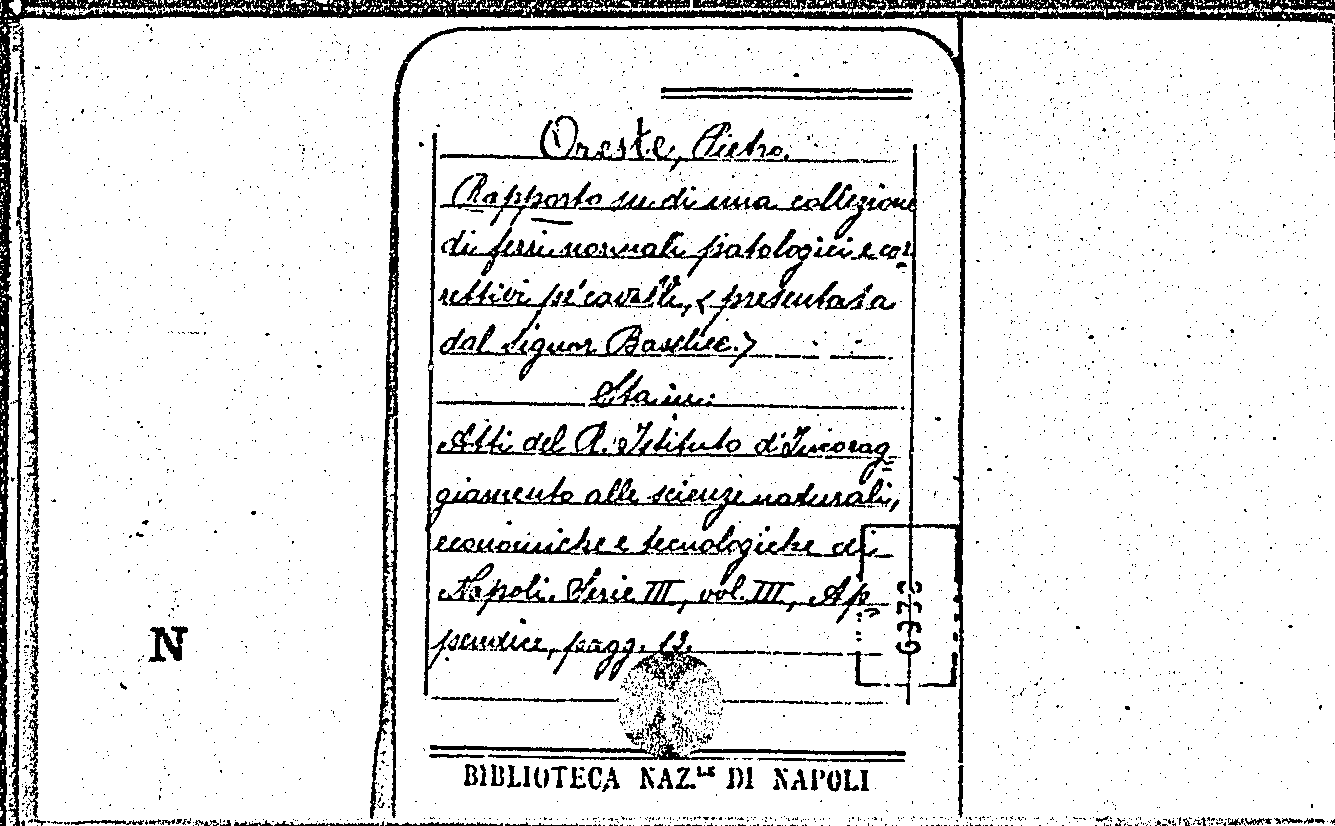 Oreste, Pietro.
Rapporto su di una collezione
di ferri normali patologici e cor-
rettivi pe' cavalli, < presentata
dal signor Baselice. >
Sta in:
Atti del R. Istituto d'Incorag-
giamento alle scienze naturali,
economiche e tecnologiche di
Napoli. Serie III, vol. III, Ap-
pendice, pagg. 12.
N
BIBLIOTECA NAZ.LE DI NAPOLI